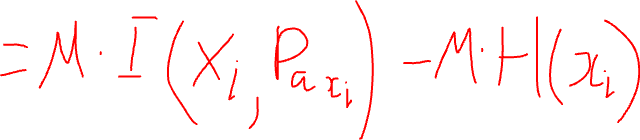 = M · I (X_i, Pa_{x_i}) - M · H(x_i)